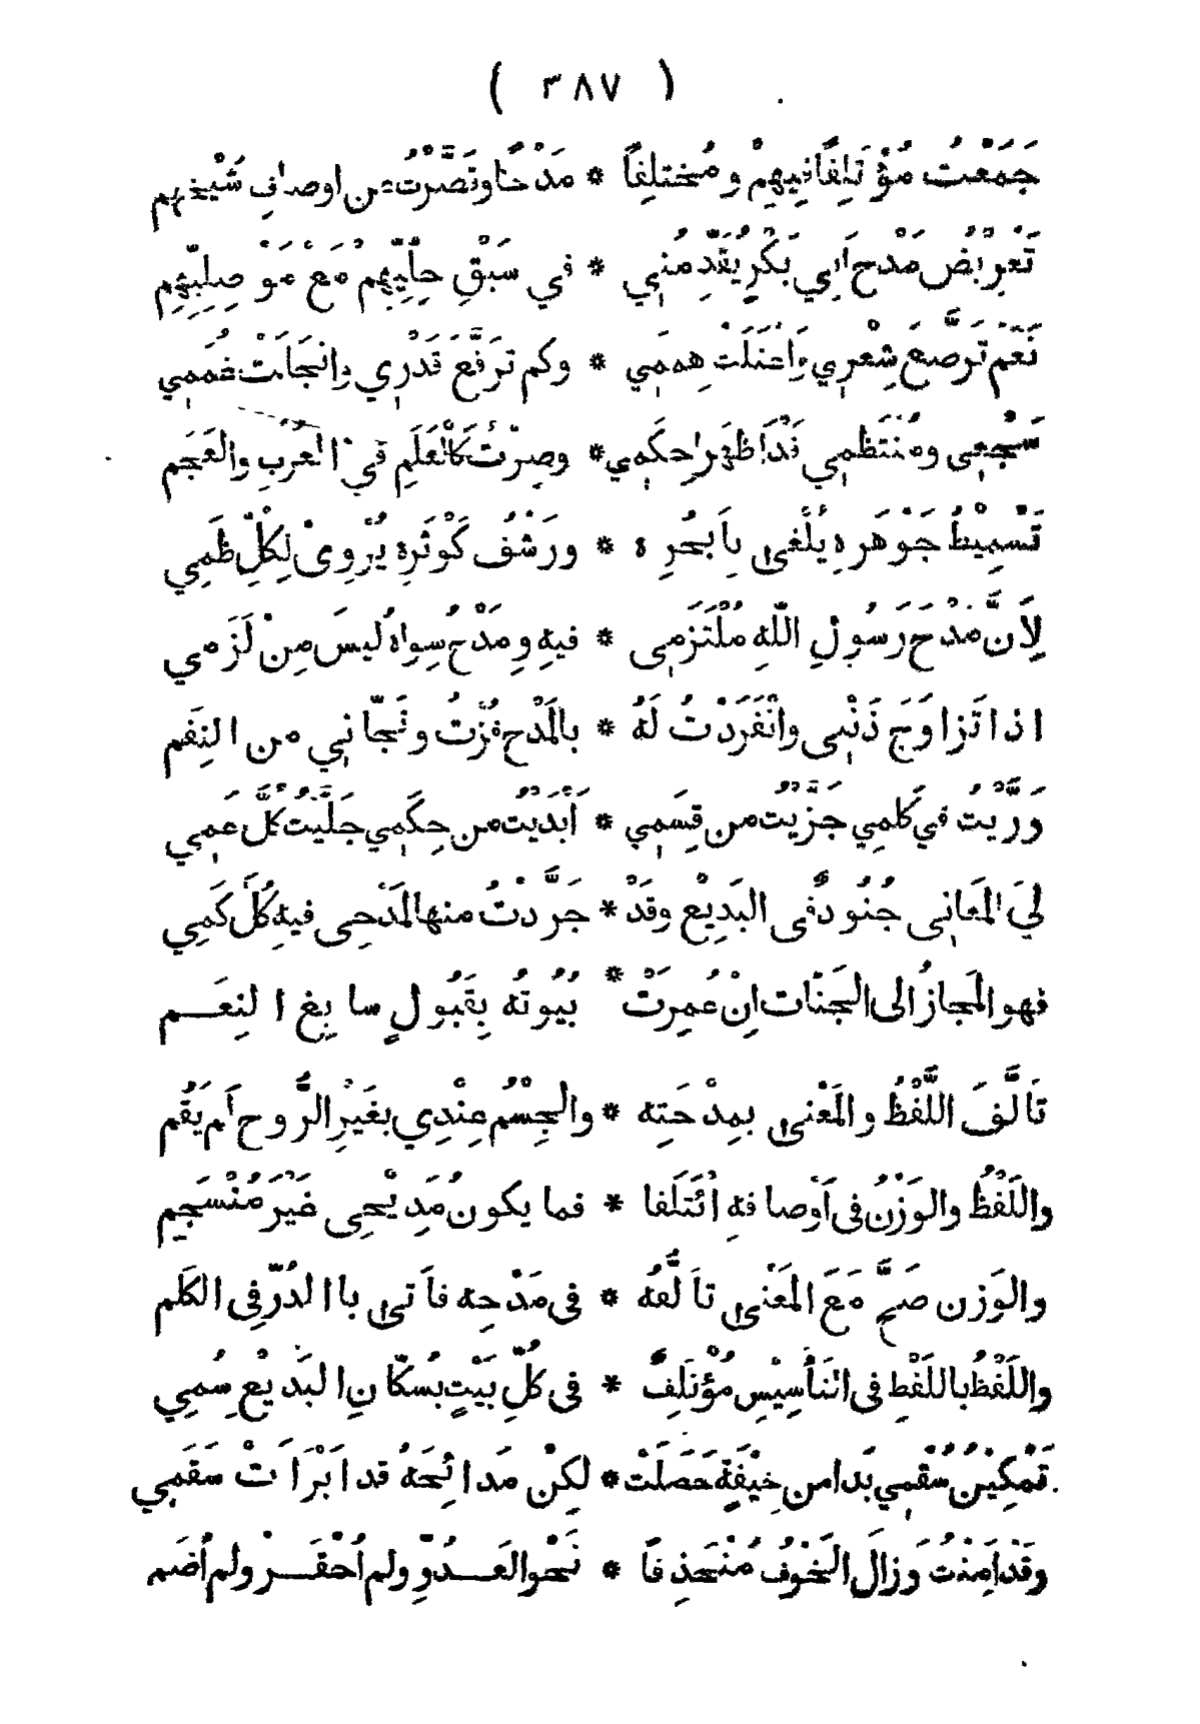 ( ٣٨٧ )
جَمَعْتُ مُؤْتَلِفًا فِيهِمْ ومُختلِفًا * مَدْحًا وقَصَّرْتُ عن اوصافِ شَيْخِهِمِ
تَعْرِيضُ مَدْحِ اَبِي بَكْرٍ يُقَدِّمُنِي * في سَبْقِ حِلِّيِّهِمْ مَعَ مَوْصِلِيِّهِمِ
نَعَم تَرَصَّعَ شِعْرِي وَاعْتَلَتْ هِمَمِي * وكم تَرَفَّعَ قَدْرِي وانْجَلَتْ غُمَمِي
سَجْعِى ومُنْتَظَمِي قَدْ اَظهَرا حِكَمِي * وصِرْتُ كَالْعَلَمِ في العَرَبِ والعَجَمِ
تَسْمِيْطُ جَوْهَرِهِ يُلْفَى بِاَبْحُرِهِ * ورَشْفُ كَوْثَرِهِ يُرْوِىْ لِكُلِّ ظَمِي
لِاَنَّ مَدْحَ رَسُوْلِ اللّٰهِ مُلْتَزَمِى * فيهِ ومَدْحُ سِواهُ ليسَ مِنْ لَزَمِي
اذا تَزاوَجَ ذَنْبِى وانْفَرَدْتُ لَهُ * بالمَدْحِ فُزْتُ ونَجّانِي من النِقَمِ
وَرَّيْتُ في كَلِمِي جَزَّيْتُ من قِسَمِي * اَبْدَيْتُ من حِكَمِي جَلَّيْتُ كُلَّ عَمِي
لِيَ المَعَانِى جُنُودٌ فى البَدِيْعِ وقَدْ * جَرَّدْتُ منها لمَدْحِى فيهِ كُلَّ كَمِي
فهو المَجازُ الى الجَنّات اِنْ عُمِرَتْ * بُيُوتُه بِقَبُولٍ سابِغِ النِعَـــم
تَاَلَّفَ اللَّفْظُ والمَعْنى بمِدْحَتِه * والجِسْمُ عِنْدِي بغَيْرِ الرُّوحِ لَم يَقُم
واللَفْظُ والوَزْنُ فى اَوْصافِهِ اْئْتَلَفا * فما يكونُ مَدِيْحِى غَيْرَ مُنْسَجِمِ
والوَزن صَحَّ مَعَ المَعْنى تاَلُّفُه * فى مَدْحِه فاَتى باالدُرِّ فِى الكَلَم
واللَفْظُ باللَفْظِ فى التَاْسِيْسِ مُؤْتَلِفٌ * فى كُلِّ بَيْتٍ بسُكّانِ البَدِيْعِ سُمِي
تَمْكِيْنُ سُقْمِي بَدا من خِيْفَةٍ حَصَلَتْ * لكِنْ مَدائِحُهُ قد ابَرْاَتْ سَقَمِي
وقَدْ اَمِنْتُ وَزالَ الخَوْفُ مُنْحَذِفًا * نَحْوالعَـــدُوِّ ولم اُحْقَـــرْ ولم اُضَم